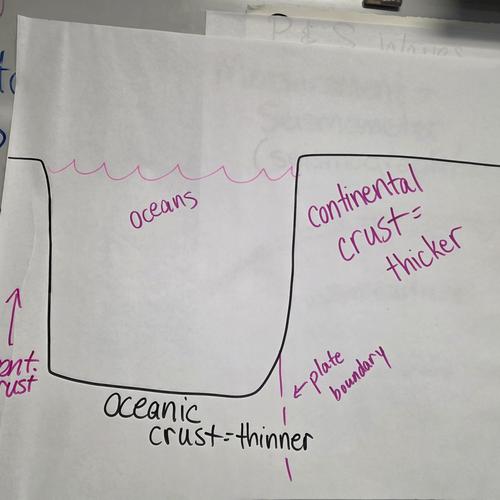 oceans
continental
crust=
thicker
plate
boundary
Oceanic
crust=thinner